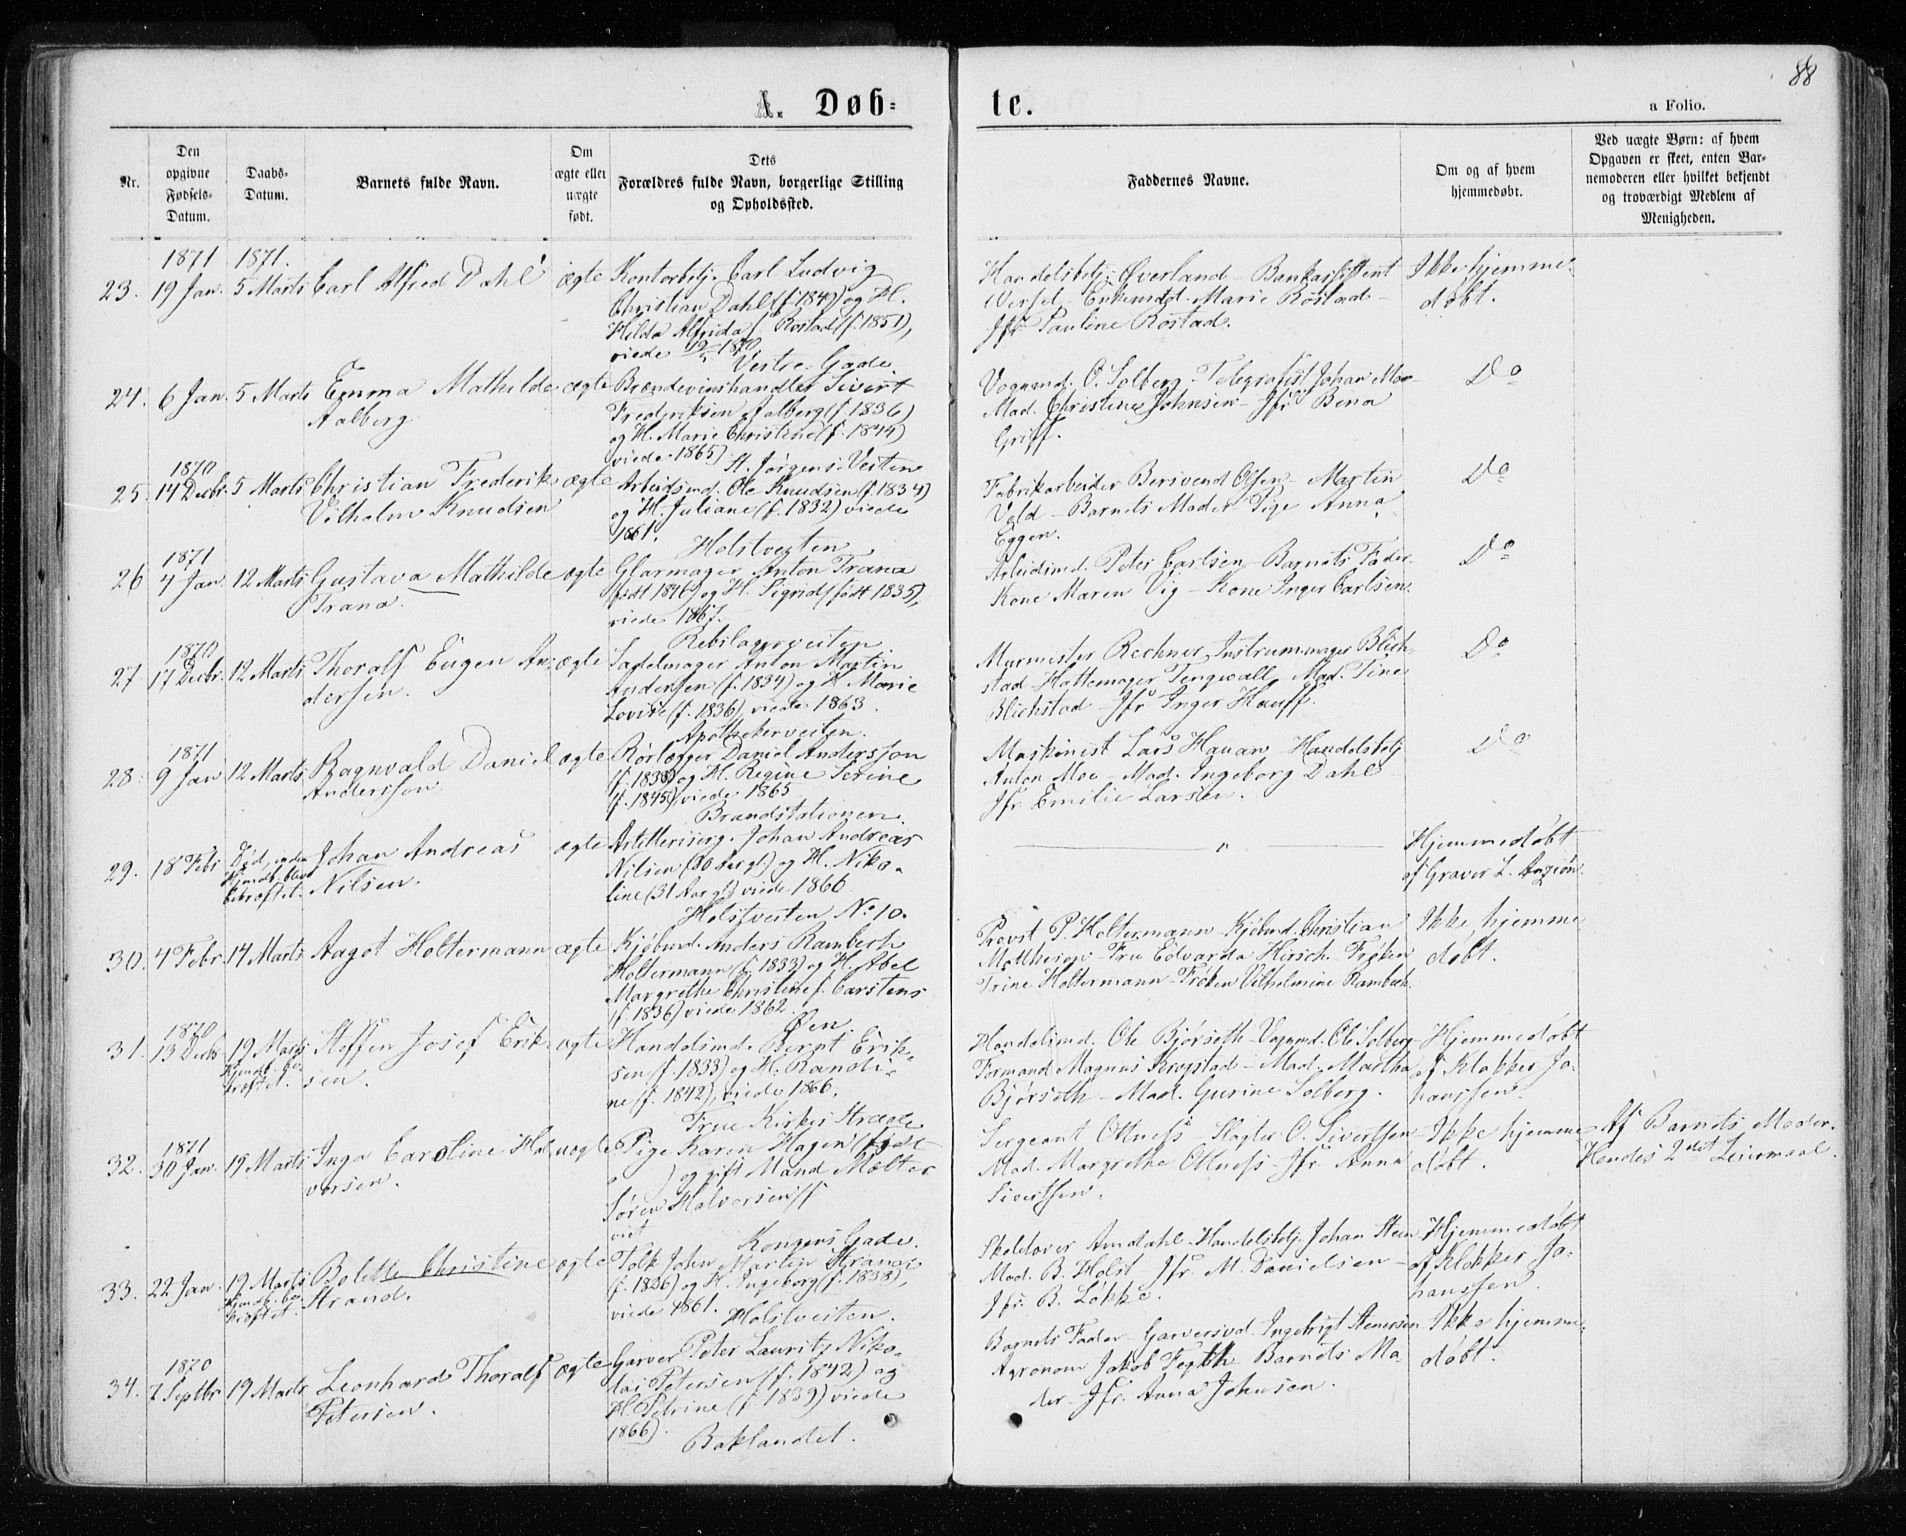 88
A. Døb=
te.
a Folio.
Nr.
Den opgivne Fødsels-Datum.
Daabs-Datum.
Barnets fulde Navn.
Om ægte eller uægte født.
Dets Forældres fulde Navn, borgerlige Stilling og Opholdssted.
Faddernes Navne.
Om og af hvem hjemmedøbt.
Ved uægte Børn: af hvem Opgaven er skeet, enten Barnemoderen eller hvilket bekjendt og troværdigt Medlem af Menigheden.
1871 1871.
23. 19 Jan. 5 Marts Carl Alfred Dahl ægte Kontorbetj. Carl Ludvig
Christian Dahl (f. 1849) og H.
Hilda Alfrida f. Rostad (f. 1851),
viede 1870.
Vestre Gade.
Handelsbetj. Øverland - Bankassistent
Wersel - Enkemad. Marie Rostad -
Jfr Pauline Rostad.
Ikke hjemme-
døbt.
24. 6 Jan. 5 Marts Emma Mathilde ægte Brændevinshandler Sivert
Aalberg Frederiksen Aalberg (f. 1836)
og H. Marie Christine (f. 1844)
viede 1865)
St. Jørgens Veiten
Vognmd. O. Solberg - Telegrafist Johan Moe -
Mad. Christine Johnsen - Jfr Bena
Griff.
Do
1870
25. 14 Decbr. 5 Marts Christian Frederik ægte Arbeidsmd. Ole Knudsen (f. 1834)
Vilhelm Knudsen og H. Juliane (f. 1832) viede
1861.
Holstveiten
Fabrikarbeider Olsen - Martin
Vold - Barnets Moder Pige Anna
Eggen.
Do
1871
26 4 Jan. 12 Marts Gustava Mathilde ægte Glarmager Anton Trana
Trana. født 1846) og H. Sigrid (født 1835),
viede 1867.
Rebslagerveiten
Arbeidsmd. Peter Carlsen - Barnets Fader -
Kone Maren Vig - Kone Inger Carlsen.
Do
1870
27 17 Decbr. 12 Marts Thoralf Eugen An- ægte Sadelmager Anton Martin
dersen. Andersen (f. 1834) og H. Marie
Lovise (f. 1836), viede 1863.
Apothekerveiten.
Murmester Rechner Instrummager Blich-
stad - Hattemager Tengwall, Mad. Tine
Blichstad - Jfr Inger Hauff.
Do
1871
28. 9 Jan 12 Marts Ragnvald Daniel ægte Rørlægger Daniel Andersson
Andersson. (f. 1838) og H. Regine Serine
(f. 1845) viede 1865
Brandstationen.
Maskinist Lars Hauan - Handelsbetj
Anton Moe - Mad. Ingeborg Dahl -
Jfr Emilie Larsen.
Do
29. 18 Febr Død, inden Johan Andreas ægte Artilleriserg. Johan Andreas
Hjmdb. blev Nilsen. Nilsen (30 Aar gl.) og H. Niko-
bekræftet. line (31 Aar gl.) viede 1866
Holstveiten No 10.
Hjemmedøbt
af Graver L.
30. 4 Febr 14 Marts Aagot Holtermann ægte Kjøbmd. Anders Rambech
Holtermann (f. 1833) og H. Abel
Margrethe Christine f. Carstens
(f. 1836) viede 1862.
Øen
Provst P. Holtermann - Kjøbmd. Christian
Matthesen - Fru Edvarda Hirsch - Frøken
Trine Holtermann - Frøken Vilhelmine Rambech.
Ikke hjemme
døbt.
1870
31. 13 Decbr 19 Marts Steffen Josef Erik- ægte Handelsmd. Bernt Erik-
Hjmdb. be- sen. sen (f. 1833) og H. Randi-
kræftet. ne (f. 1842), viede 1866.
Frue Kirkes Stræde
Handelsmd. Ole Bjørseth - Vognmd. Ole Solberg
Formand Magnus Krogstad - Mad. Martha
Bjørseth - Mad. Gurine Solberg.
Hjemmedøbt
af Klokker Jo-
hanssen.
1871
32. 30 Jan. 19 Marts Inga Caroline Hal- uægte Pige Karen Hagen (født
vorsen. ) og gift Mand
Søren Halvorsen
Kongens Gade.
Sergeant Ottness - Slagter O. Sivertsen
Mad. Margrethe Ottness - Jfr Anna
Sivertsen.
Ikke hjemme
døbt.
Af Barnets Moder.
Hendes 2det Leiermaal.
33. 22 Jan. 19 Marts Bolette Christine ægte Tolk John Martin Strand
Hjmdb. be- Strand. (f. 1836) og H. Ingeborg (f. 1838),
kræftet. viede 1861.
Holstveiten.
Skolelærer Amdahl - Handelsbetj. Johan Stein
Mad. B. Holst - Jfr. M. Danielsen -
Jfr. B. Løkke.
Hjemmedøbt
af Klokker Jo-
hanssen.
1870
34. 2 Septbr 19 Marts Leonhard Thoralf ægte Garver Peter Lauritz Niko-
Petersen. lai Petersen (f. 1842) og
H. Petrine (f. 1839) viede
1866).
Baklandet.
Barnets Fader - Garversvd. Ingebrigt Stenersen
Agronom Jakob Barnets Mo-
der - Jfr. Anna Johnsen.
Ikke hjemme-
døbt.